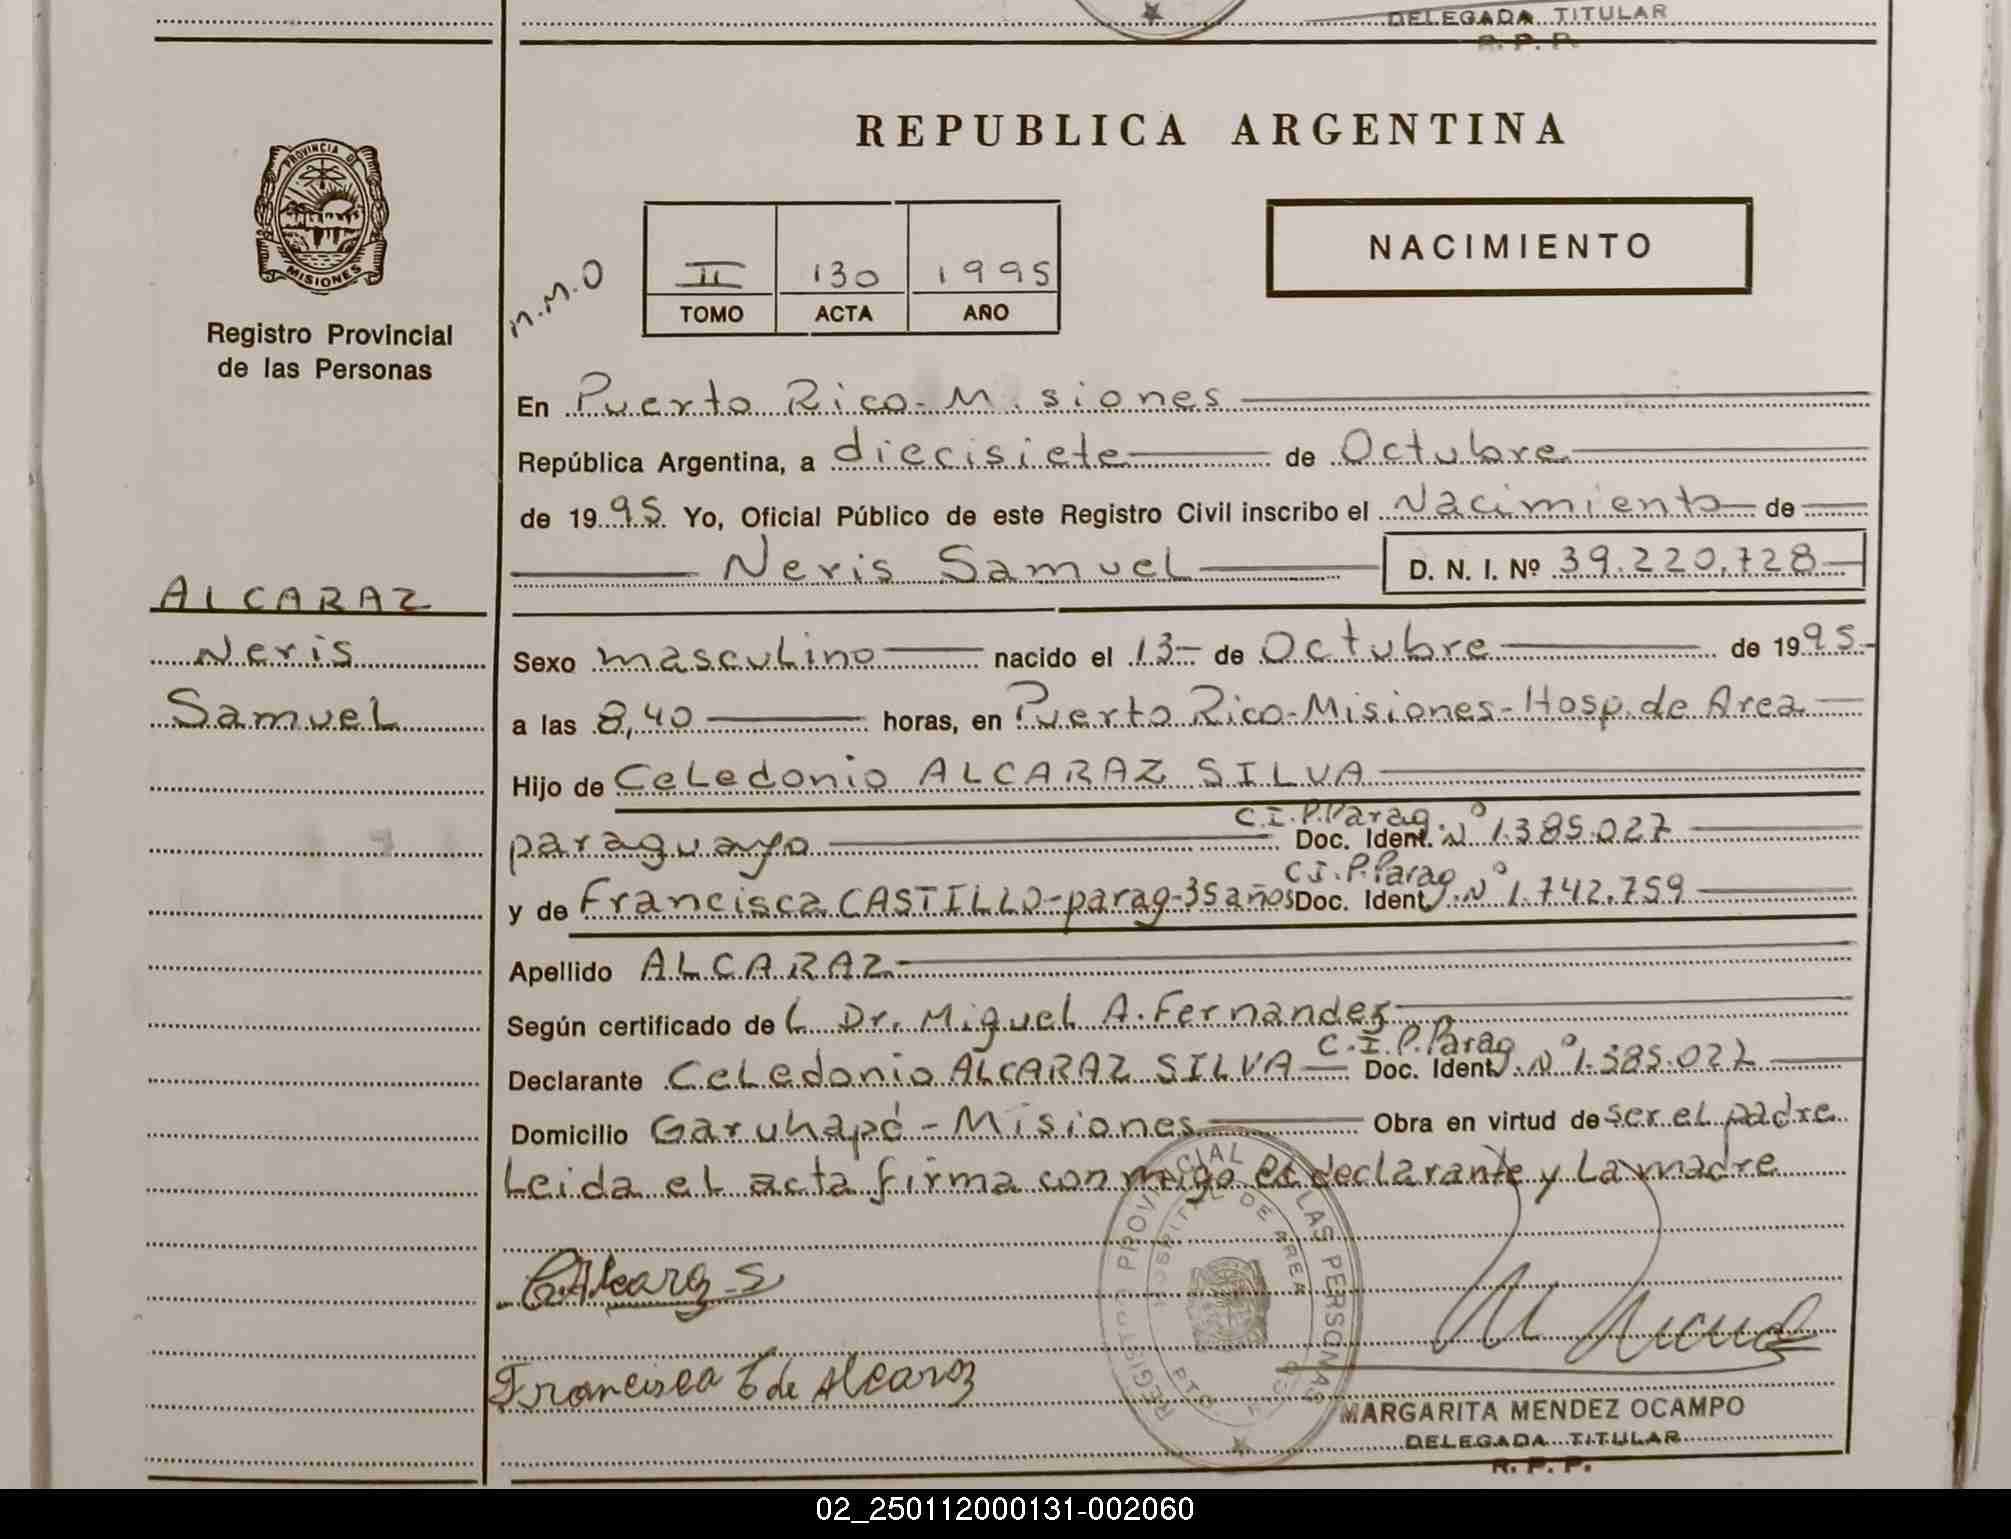 DELEGADA TITULAR
R. P. P.
PROVINCIA DE
MISIONES
Registro Provincial
de las Personas
REPUBLICA ARGENTINA
NACIMIENTO
N.M.O
II 130 1995
TOMO ACTA AÑO
En Puerto Rico-Misiones
República Argentina, a diecisiete de Octubre
de 1995 Yo, Oficial Público de este Registro Civil inscribo el Nacimiento de
Neris Samuel D. N. I. Nº 39.220.728
ALCARAZ
Neris
Samuel
Sexo masculino nacido el 13 de Octubre de 1995
a las 8,40 horas, en Puerto Rico-Misiones-Hosp. de Area
Hijo de Celedonio ALCARAZ SILVA
paraguayo C.I.P.Parag. Doc. Ident. Nº 1.385.027
y de Francisca CASTILLO-parag-35 años C.I.P.Parag Doc. Ident. Nº 1.742.759
Apellido ALCARAZ
Según certificado del Dr. Miguel A. Fernandez
Declarante Celedonio ALCARAZ SILVA C.I.P.Parag Doc. Ident. Nº 1.385.027
Domicilio Garuhapé-Misiones Obra en virtud de ser el padre
Leida el acta firma conmigo el declarante y la madre
REGISTRO PROVINCIAL DE LAS PERSONAS
HOSPITAL DE AREA
PTO RICO
C Alcaraz S
Francisca C de Alcaraz
MARGARITA MENDEZ OCAMPO
DELEGADA TITULAR
R. P. P.
02_250112000131-002060